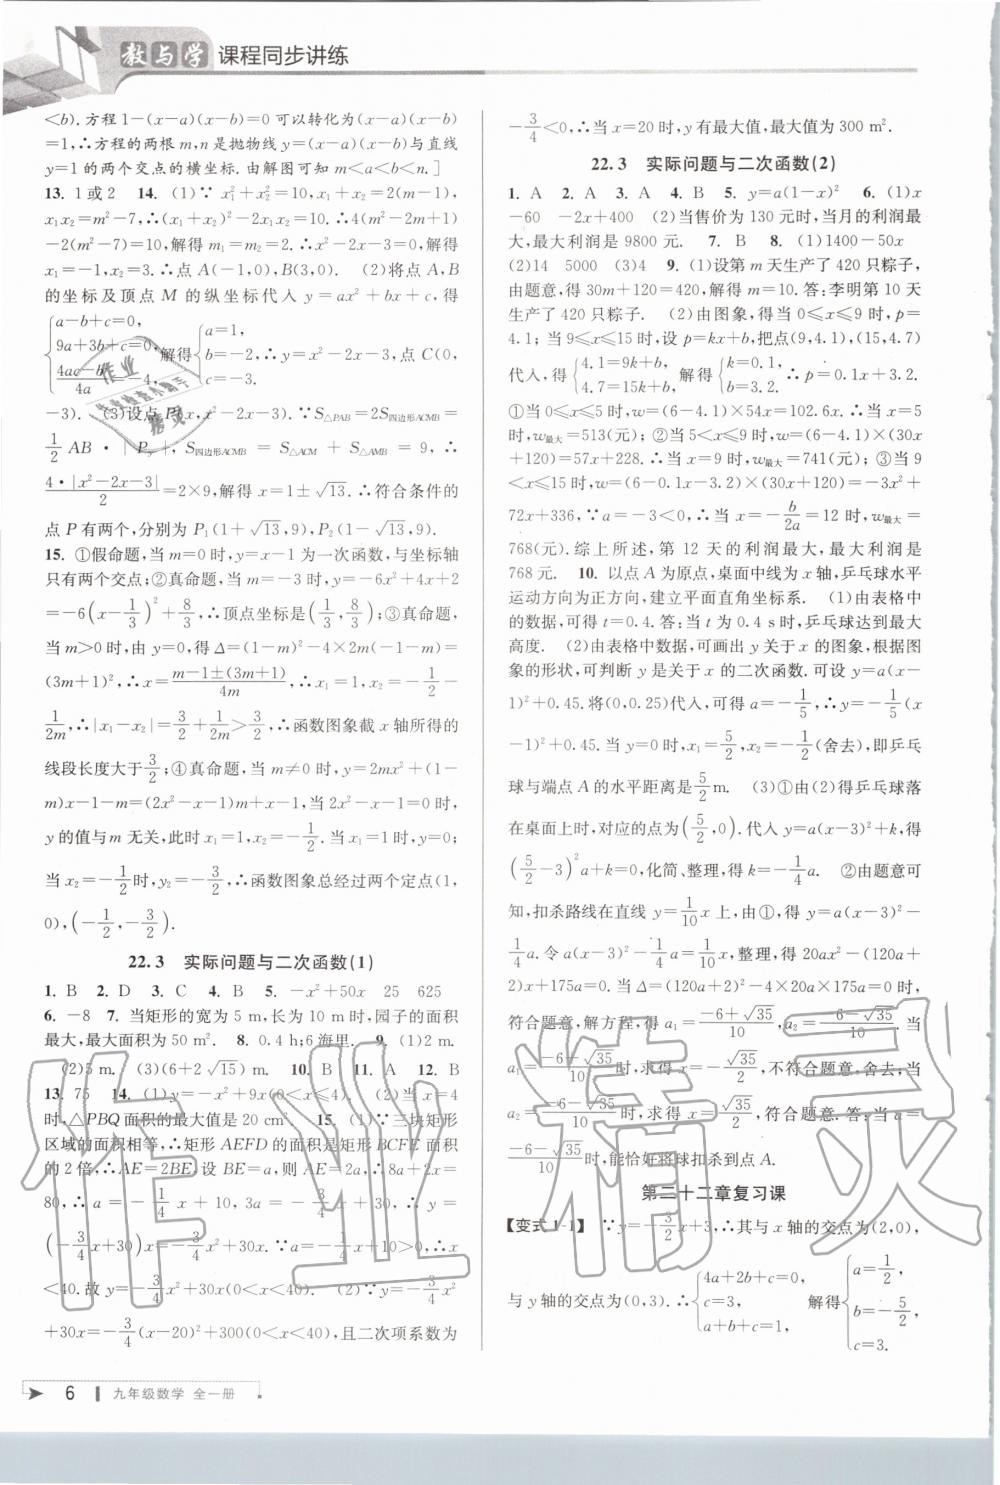 教与学 课程同步讲练
<b).方程1-(x-a)(x-b)=0可以转化为(x-a)(x-b)
=1,∴方程的两根m,n是抛物线y=(x-a)(x-b)与直线
y=1的两个交点的横坐标.由解图可知m<a<b<n.]
13. 1或2 14. (1)∵ x₁²+x₂²=10,x₁+x₂=2(m-1),
x₁x₂=m²-7,∴(x₁+x₂)²-2x₁x₂=10.∴4(m²-2m+1)
-2(m²-7)=10,解得m₁=m₂=2.∴x²-2x-3=0,解得
x₁=-1,x₂=3.∴点A(-1,0),B(3,0). (2)将点A,B
的坐标及顶点M的纵坐标代入y=ax²+bx+c,得
{a-b+c=0, 9a+3b+c=0, (4ac-b²)/4a=-4, 解得{a=1, b=-2, c=-3. ∴y=x²-2x-3,点C(0,
-3). (3)设点P(x,x²-2x-3).∵S△PAB=2S四边形ACMB=
1/2 AB·|Py|, S四边形ACMB=S△ACM+S△AMB=9,∴
4·|x²-2x-3|/2=2×9,解得x=1±√13.∴符合条件的
点P有两个,分别为P₁(1+√13,9),P₂(1-√13,9).
15. ①假命题,当m=0时,y=x-1为一次函数,与坐标轴
只有两个交点;②真命题,当m=-3时,y=-6x²+4x+2
=-6(x-1/3)²+8/3,∴顶点坐标是(1/3,8/3);③真命题,
当m>0时,由y=0,得Δ=(1-m)²-4×2m(-1-m)=
(3m+1)²,∴x=(m-1±(3m+1))/4m,∴x₁=1,x₂=-1/2-
1/2m,∴|x₁-x₂|=3/2+1/2m>3/2,∴函数图象截x轴所得的
线段长度大于3/2;④真命题,当m≠0时,y=2mx²+(1-
m)x-1-m=(2x²-x-1)m+x-1,当2x²-x-1=0时,
y的值与m无关,此时x₁=1,x₂=-1/2.当x₁=1时,y=0;
当x₂=-1/2时,y₂=-3/2,∴函数图象总经过两个定点(1,
0),(-1/2,-3/2).
22.3 实际问题与二次函数(1)
1. B 2. D 3. C 4. B 5. -x²+50x 25 625
6. -8 7. 当矩形的宽为5 m,长为10 m时,园子的面积
最大,最大面积为50 m². 8. 0.4 h;6海里. 9. (1)2 m.
(2)5 m. (3)(6+2√15)m. 10. B 11. A 12. B
13. 75 14. (1)y=-x²+9x(0<x≤4). (2)当x=4
时,△PBQ面积的最大值是20 cm². 15. (1)∵三块矩形
区域的面积相等,∴矩形AEFD的面积是矩形BCFE面积
的2倍,∴AE=2BE.设BE=a,则AE=2a,∴8a+2x=
80,∴a=-1/4x+10,3a=-3/4x+30,∴y=
(-3/4x+30)x=-3/4x²+30x.∵a=-1/4x+10>0,∴x
<40.故y=-3/4x²+30x(0<x<40). (2)∵y=-3/4x²
+30x=-3/4(x-20)²+300(0<x<40),且二次项系数为
-3/4<0,∴当x=20时,y有最大值,最大值为300 m².
22.3 实际问题与二次函数(2)
1. A 2. A 3. A 4. B 5. y=a(1-x)² 6. (1)x
-60 -2x+400 (2)当售价为130元时,当月的利润最
大,最大利润是9800元. 7. B 8. (1)1400-50x
(2)14 5000 (3)4 9. (1)设第m天生产了420只粽子,
由题意,得30m+120=420,解得m=10.答:李明第10天
生产了420只粽子. (2)由图象,得当0≤x≤9时,p=
4.1;当9≤x≤15时,设p=kx+b,把点(9,4.1),(15,4.7)
代入,得{4.1=9k+b, 4.7=15k+b, 解得{k=0.1, b=3.2, ∴p=0.1x+3.2.
①当0≤x≤5时,w=(6-4.1)×54x=102.6x.∴当x=5
时,w最大=513(元);②当5<x≤9时,w=(6-4.1)×(30x
+120)=57x+228.∴当x=9时,w最大=741(元);③当9
<x≤15时,w=(6-0.1x-3.2)×(30x+120)=-3x²+
72x+336,∵a=-3<0,∴当x=-b/2a=12时,w最大=
768(元).综上所述,第12天的利润最大,最大利润是
768元. 10. 以点A为原点,桌面中线为x轴,乒乓球水平
运动方向为正方向,建立平面直角坐标系. (1)由表格中
的数据,可得t=0.4.答:当t为0.4 s时,乒乓球达到最大
高度. (2)由表格中数据,可画出y关于x的图象,根据图
象的形状,可判断y是关于x的二次函数.可设y=a(x-
1)²+0.45.将(0,0.25)代入,可得a=-1/5,∴y=-1/5(x
-1)²+0.45.当y=0时,x₁=5/2,x₂=-1/2(舍去),即乒乓
球与端点A的水平距离是5/2 m. (3)①由(2)得乒乓球落
在桌面上时,对应的点为(5/2,0).代入y=a(x-3)²+k,得
(5/2-3)²a+k=0,化简、整理,得k=-1/4a. ②由题意可
知,扣杀路线在直线y=1/10x上,由①,得y=a(x-3)²-
1/4a.令a(x-3)²-1/4a=1/10x,整理,得20ax²-(120a+
2)x+175a=0.当Δ=(120a+2)²-4×20a×175a=0时,
符合题意,解方程,得a₁=(-6+√35)/10,a₂=(-6-√35)/10.当
a₁=(-6+√35)/10时,求得x=-√35/2,不符合题意,舍去;当
a₂=(-6-√35)/10时,求得x=√35/2,符合题意.答:当a=
(-6-√35)/10时,能恰好将球扣杀到点A.
第二十二章复习课
【变式1-1】 ∵y=-3/2x+3,∴其与x轴的交点为(2,0),
与y轴的交点为(0,3).∴{4a+2b+c=0, c=3, a+b+c=1, 解得{a=1/2, b=-5/2, c=3.
6 九年级数学 全一册
作业精灵